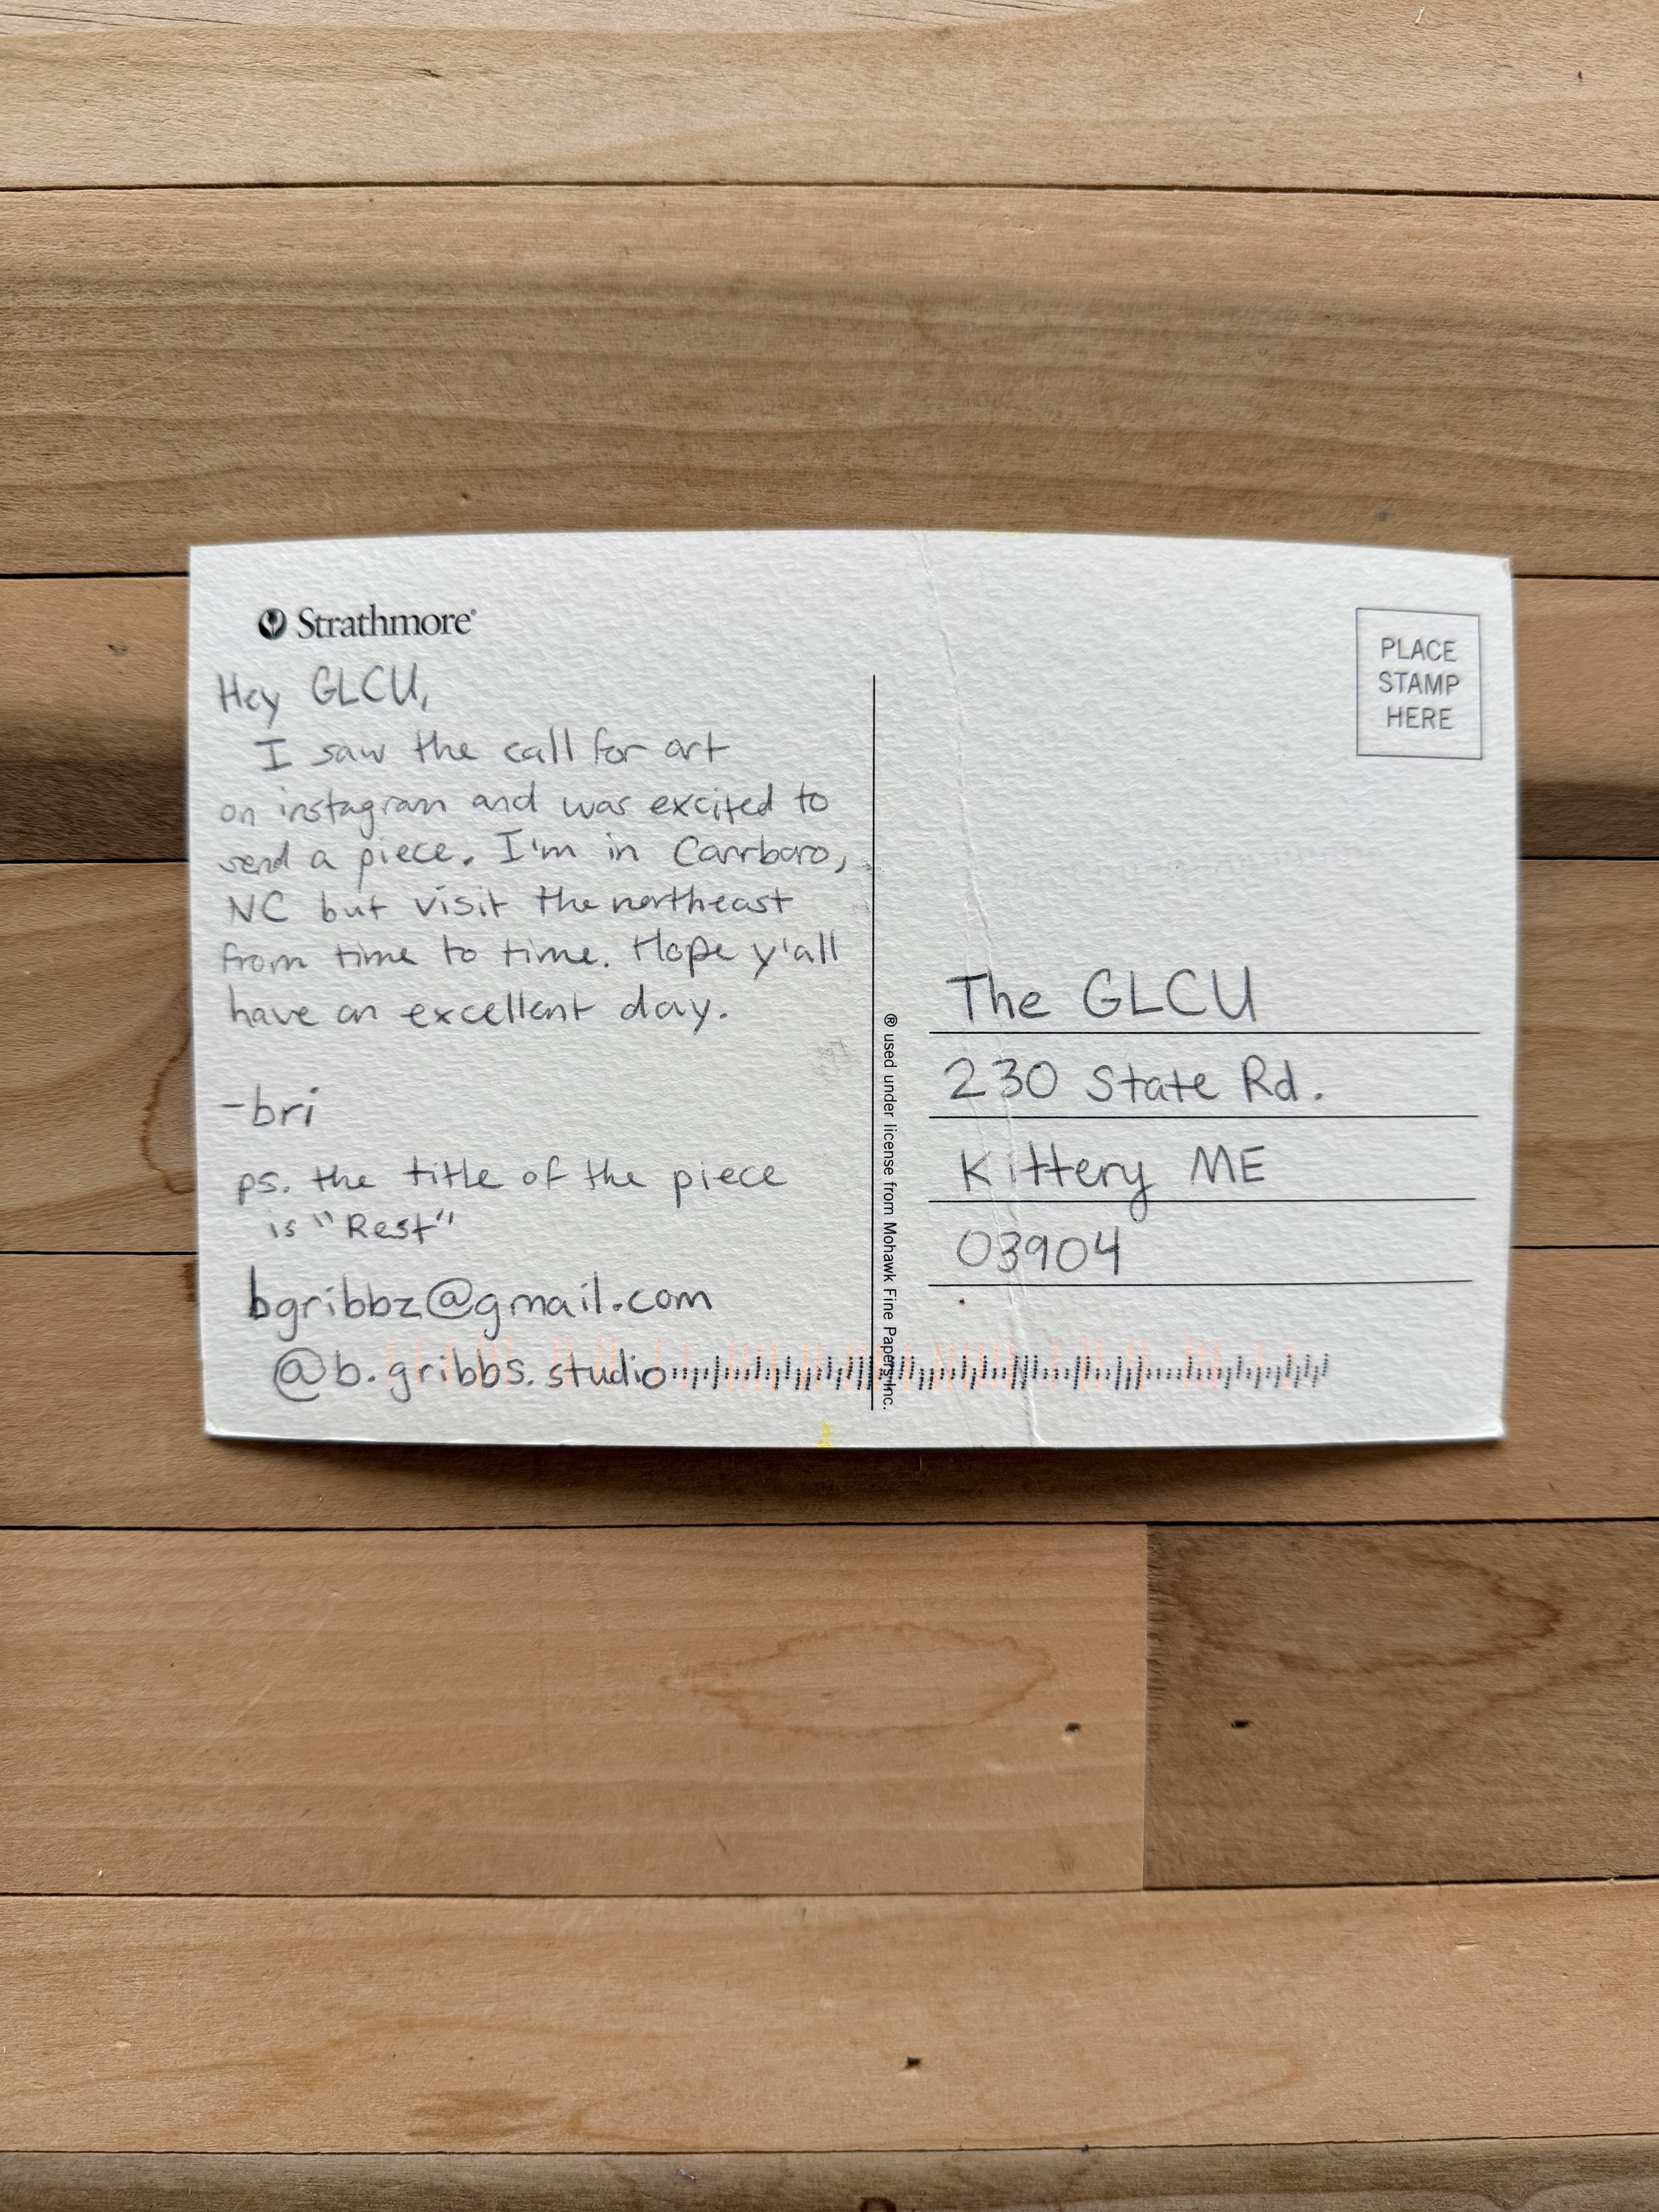 Strathmore®
Hey GLCU,
I saw the call for art
on instagram and was excited to
send a piece. I'm in Carrboro,
NC but visit the northeast
from time to time. Hope y'all
have an excellent day.
-bri
ps. the title of the piece
is "Rest"
bgribbz@gmail.com
@b.gribbs.studio
® used under license from Mohawk Fine Papers Inc.
PLACE
STAMP
HERE
The GLCU
230 State Rd.
Kittery ME
03904